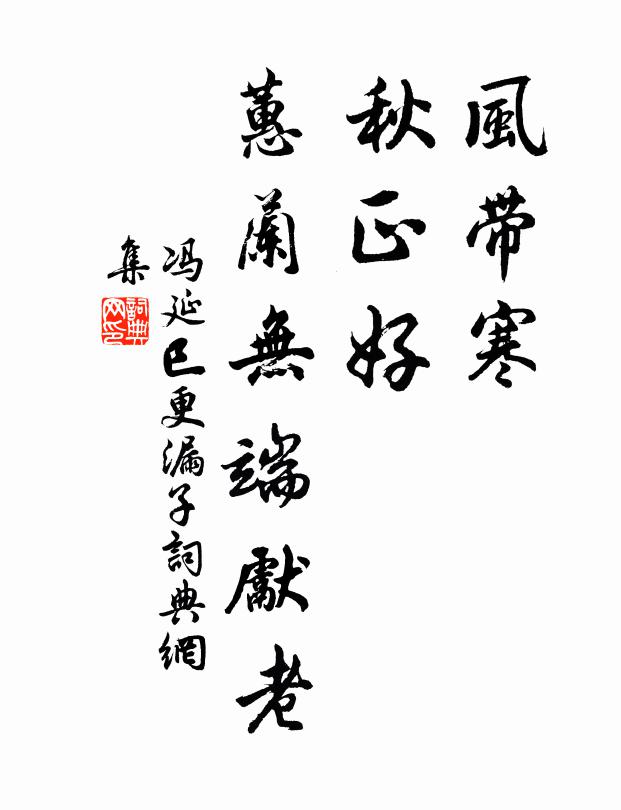 風帶寒
秋正好
蕙蘭無端獻老
冯延巳更漏子詞典網
集
詞典
网印